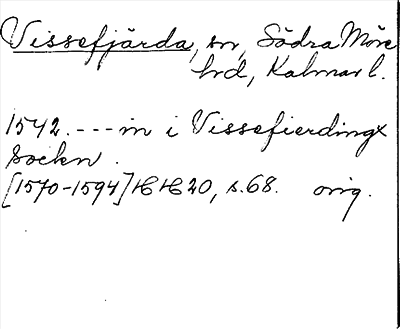 Vissefjärda, sn, Södra Möre
hd, Kalmar l.
1542. --- in i Vissefierdingx
Sockn.
[1570-1594] HH20, s.68. orig.